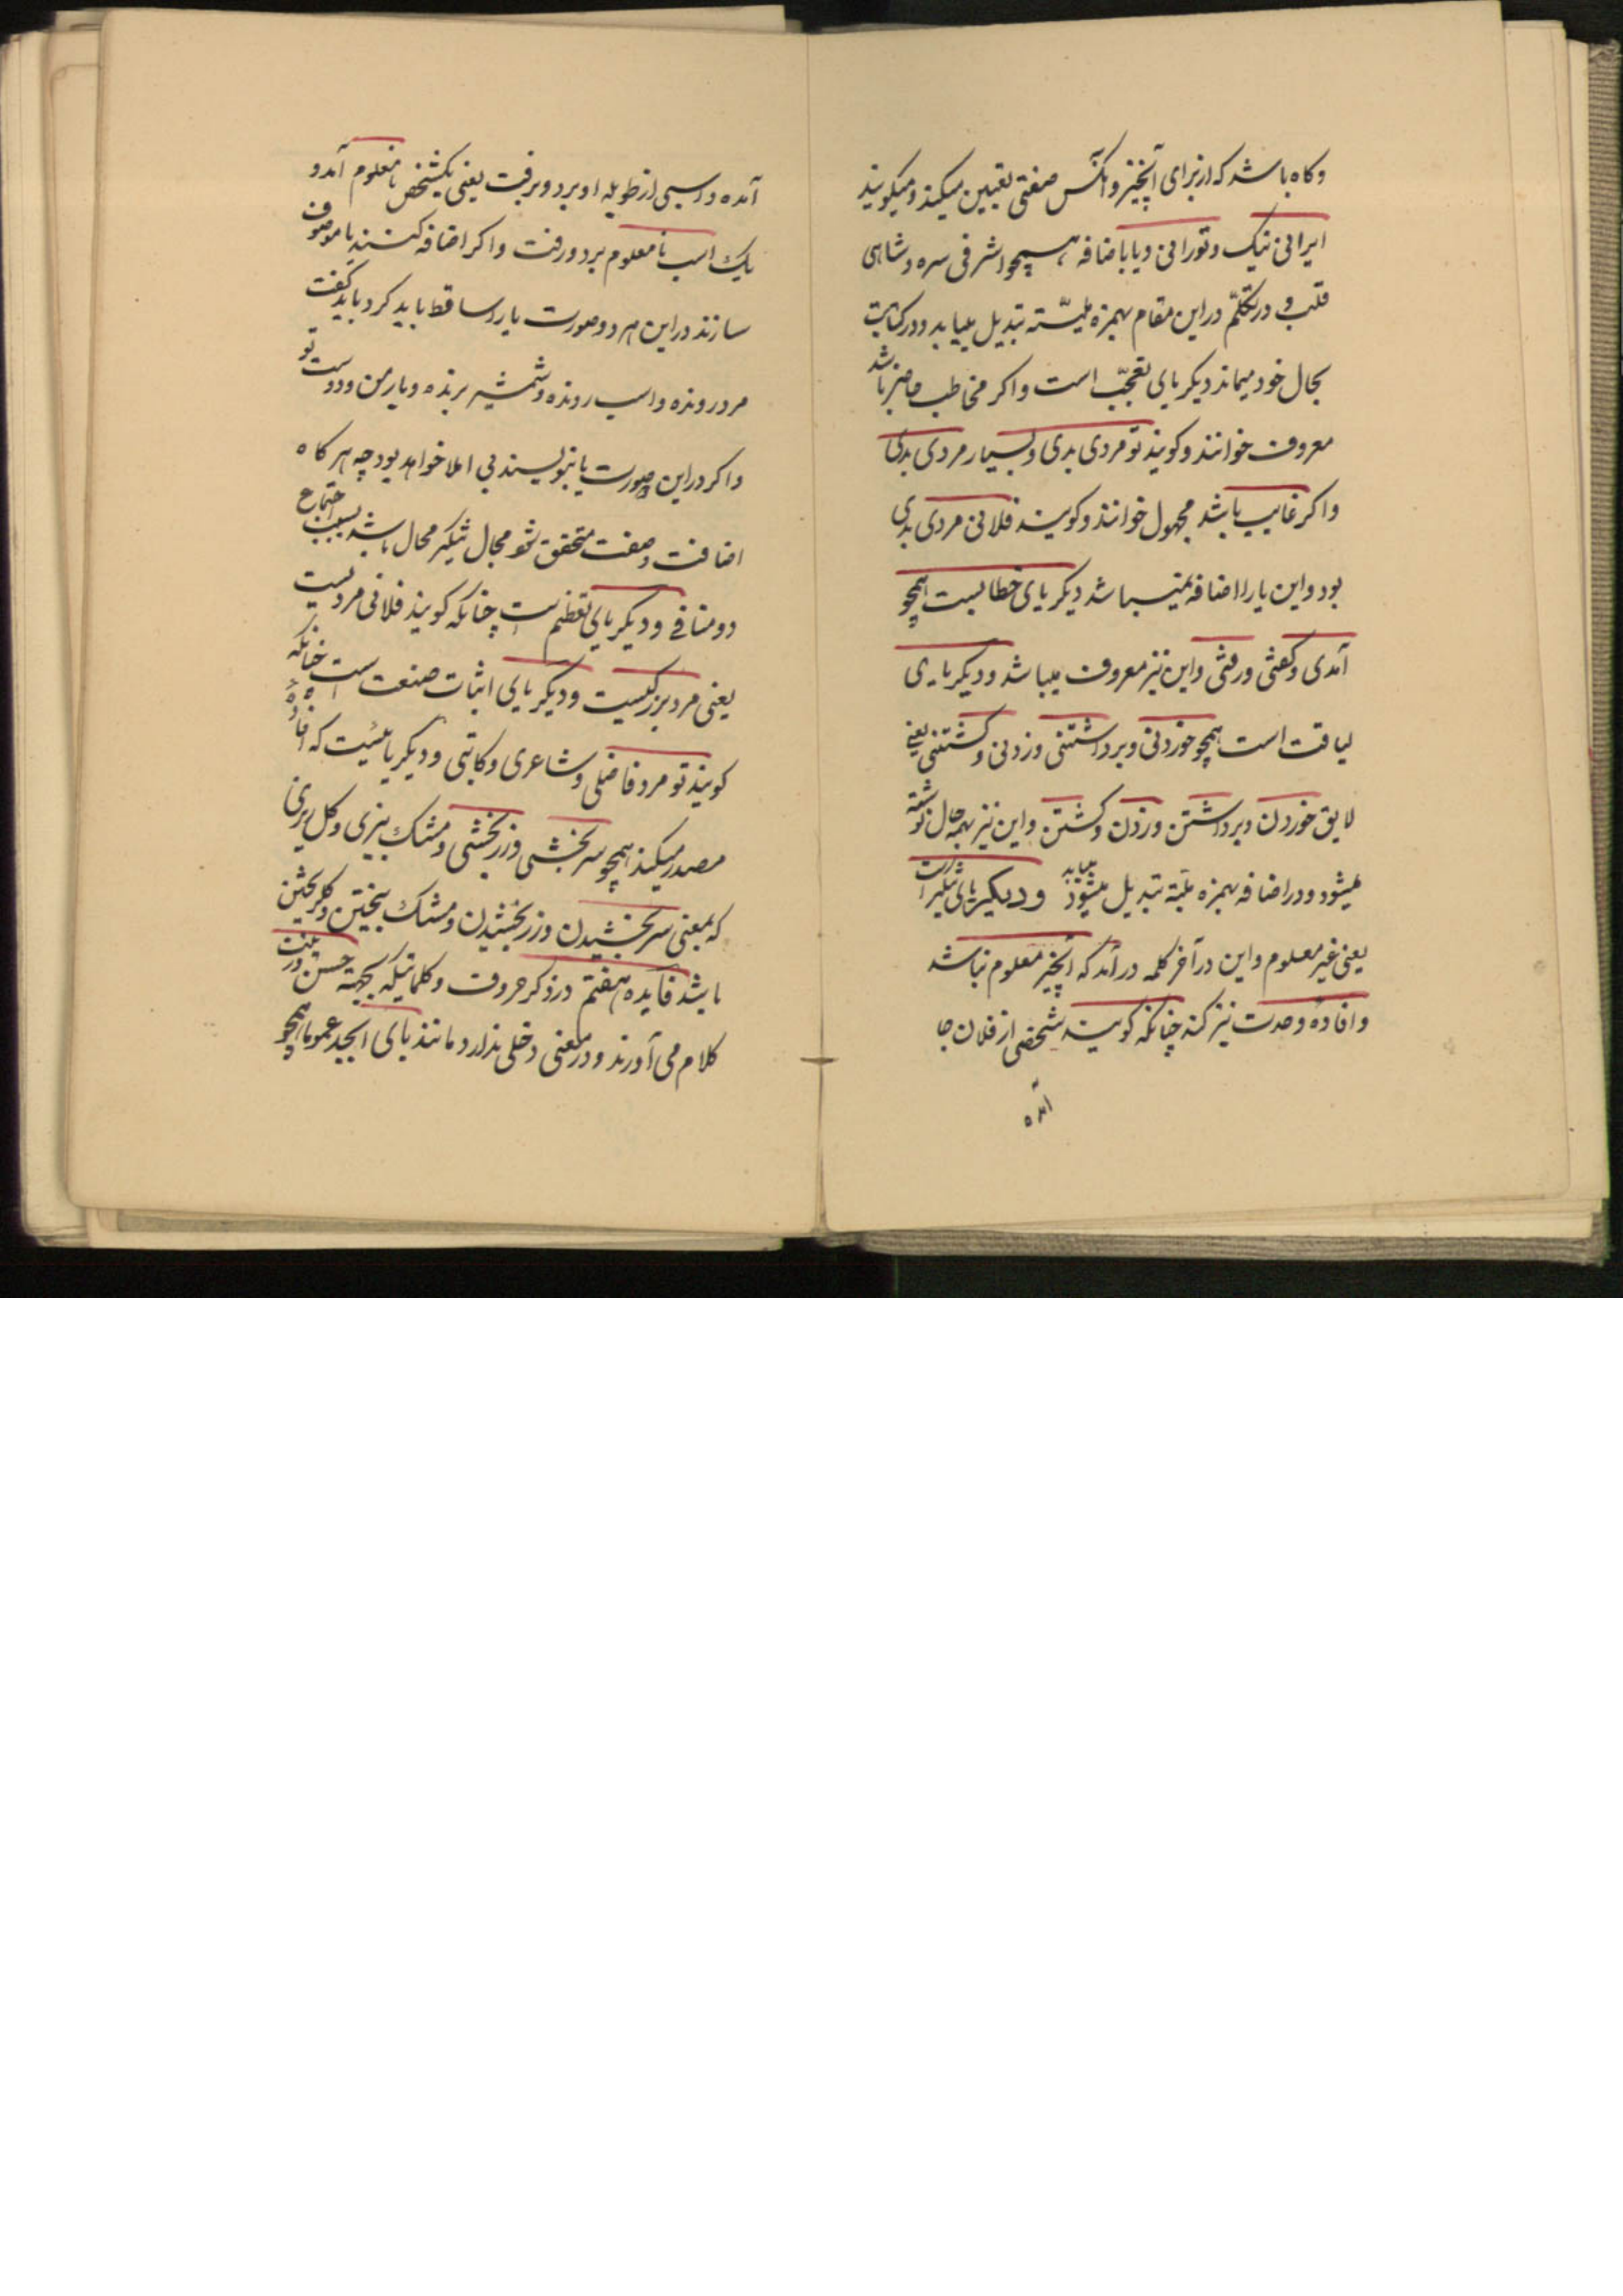 وکاه باشد که از برای آنچیز و آنکس صفتی تعیین میکنند و میکویند
ایرانی نیک و تورانی و یا باضافه همچو اشرفی سره و شاهی
قلب و در تکلم در این مقام بهمزه ملینه تبدیل مییابد و در کتابت
بحال خود میماند دیکر یای تعجب است و اکر مخاطب حاضر باشد
معروف خوانند و کویند تو مردی بدی و بسیار مردی بدی
و اکر غایب باشد مجهول خوانند و کویند فلانی مردی بدی
بود و این یا را اضافه نمیباشد دیکر یای خطابست همچو
آمدی و کفتی و رفتی و این نیز معروف میباشد و دیکر یای
لیاقت است همچو خوردنی و برداشتنی و زدنی و کشتنی یعنی
لایق خوردن و برداشتن و زدن و کشتن و این نیز بهمه حال نوشته
میشود و در اضافه بهمزه ملینه تبدیل میشود مییابد و دیکر یای تنکیر است
یعنی غیر معلوم و این در آخر کلمه در آمد که آنچیز معلوم نباشد
و افاده وحدت نیز کند چنانکه کویند شخصی از فلان جا
آمده
آمده و اسبی از طویله او برد و برفت یعنی یکشخص نامعلوم آمد و
یک اسب نامعلوم برد و رفت و اکر اضافه کنند یا موصوف
سازند در این هر دو صورت یا را ساقط باید کرد باید کفت
مرد رونده و اسب رونده و شمشیر برنده و یار من و دوست تو
و اکر در این صورت یا بنویسند بی املا خواهد بود چه هر کاه
اضافت و صفت متحقق شود مجال تنکیر محال باشد بسبب اجتماع
دو منافی و دیکر یای تعظیم است چنانکه کویند فلانی مردیست
یعنی مرد بزرکیست و دیکر یای اثبات صنعت است چنانکه
کویند تو مرد فاضلی و شاعری و کاتبی و دیکر یائیست که افاده
مصدر میکند همچو سربخشی و زربخشی و مشک بیزی و کل ریزی
که بمعنی سربخشیدن و زربخشیدن و مشک بیختن و کل ریختن
باشد فایده هفتم در ذکر حروف و کلماتیکه بجهة حسن و زینت
کلام می آورند و در معنی دخلی ندارد مانند بای ابجد عموما همچو